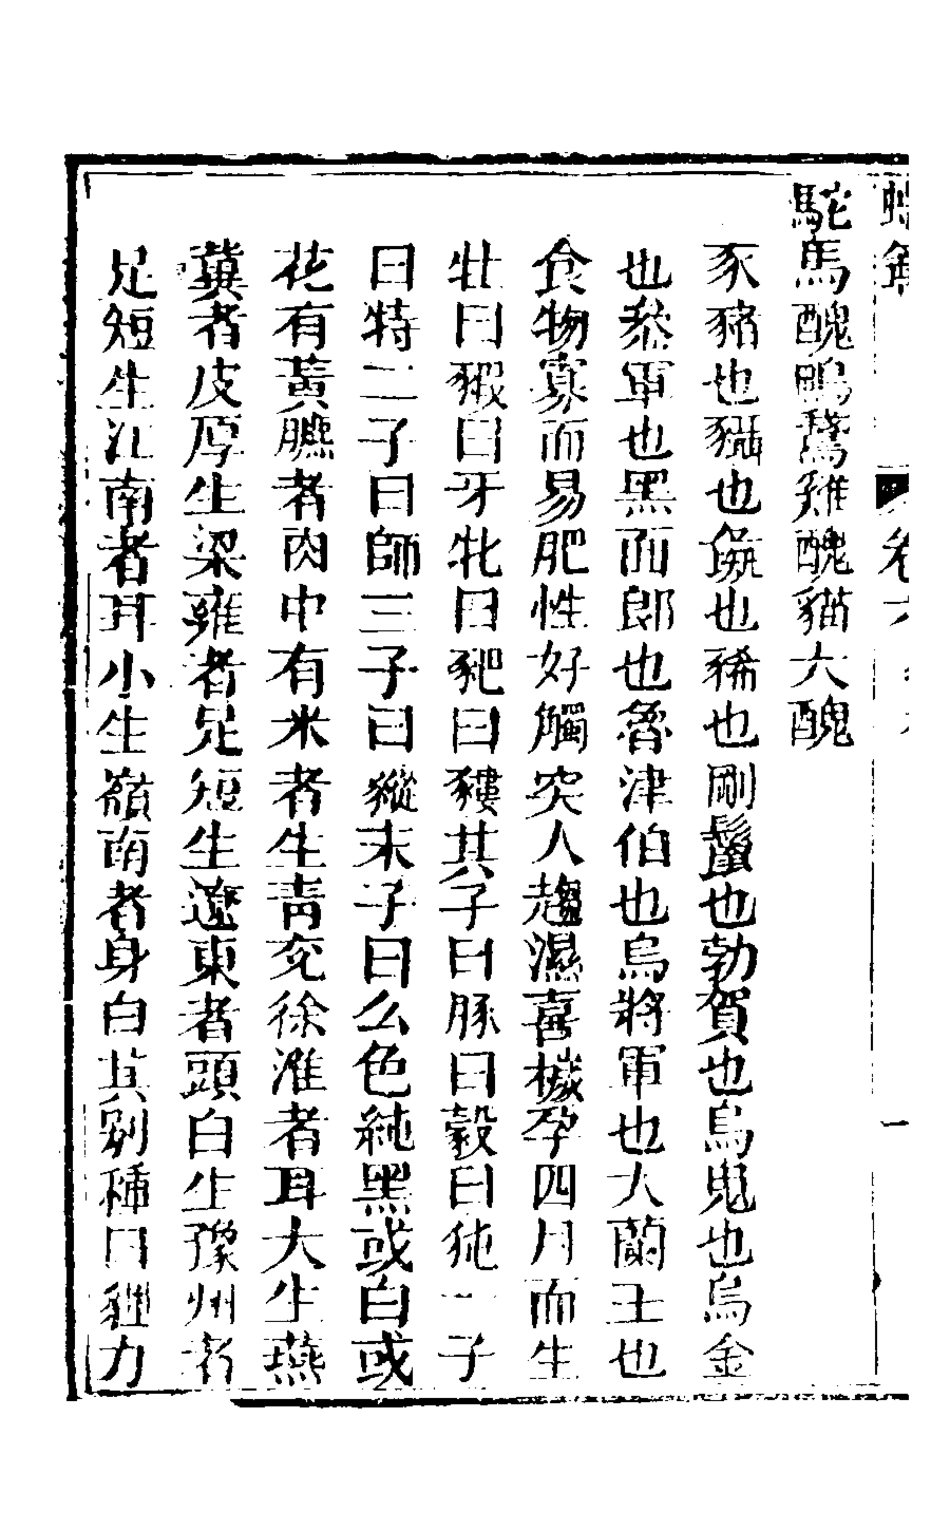 卷六
駝馬醜鴨鶩雞醜貓犬醜
豕豬也豲也𧱓也豨也剛鬣也勃賀也烏鬼也烏金
也叅軍也黑面郎也魯津伯也烏將軍也大蘭王也
食物寡而易肥性好觸突人趨濕喜穢孕四月而生
牡曰豭曰牙牝曰豝曰豵其子曰豚曰豰曰㹠一子
曰特二子曰師三子曰豵末子曰么色純黑或白或
花有黃臕者肉中有米者生青兗徐淮者耳大生燕
冀者皮厚生梁雍者足短生遼東者頭白生豫州者
足短生江南者耳小生嶺南者身白其別種曰豵力